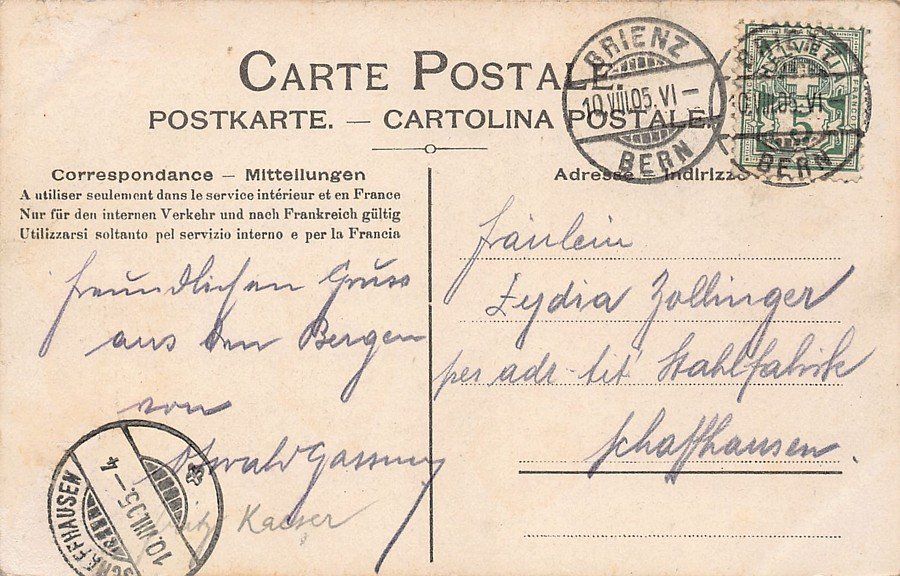 CARTE POSTALE.
POSTKARTE. — CARTOLINA POSTALE.
BRIENZ
10.VIII.05.VI—
BERN
10.VIII.05.VI
BERN
HELVETIA
FRANCO
5
Correspondance – Mitteilungen
A utiliser seulement dans le service intérieur et en France
Nur für den internen Verkehr und nach Frankreich gültig
Utilizzarsi soltanto pel servizio interno e per la Francia
Adresse – Indirizzo
Freundlichen Gruss
aus den Bergen
von
Oswald
Kaeser
Fräulein
Lydia Zollinger
per adr. tit. Stahlfabrik
Schaffhausen
SCHAFFHAUSEN
10.VIII.05.–4